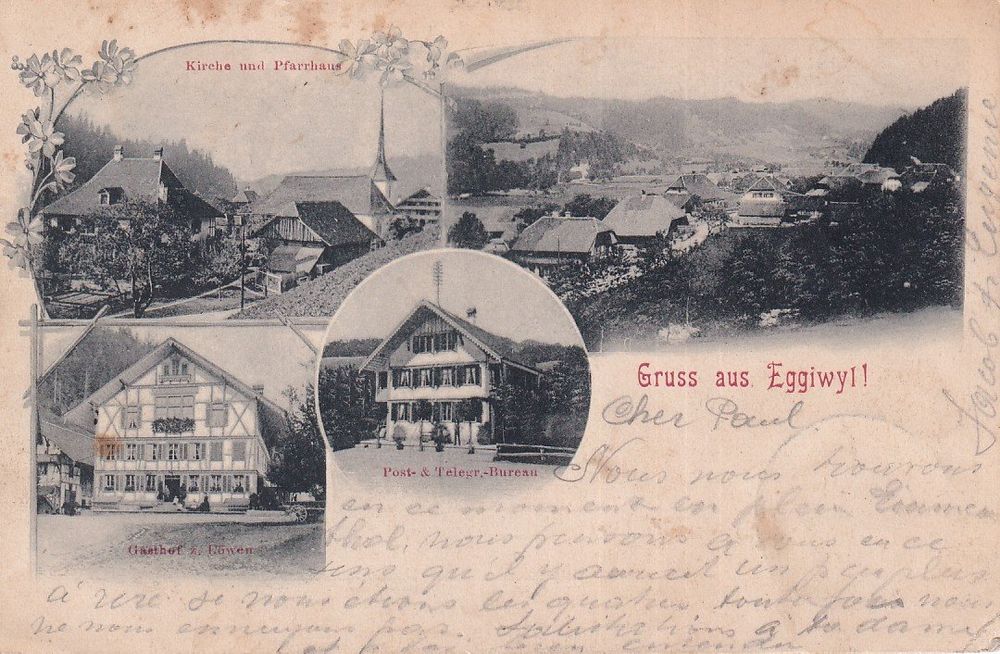 Kirche und Pfarrhaus
Gruss aus Eggiwyl!
Post- & Telegr.-Bureau
Gasthof z. Löwen
Cher Paul
Nous nous trouvons
en ce moment en plein Emmen
thal, nous pensons à vous en ce
sens qu'il y aurait un peu plus
à rire si nous étions les quatre toutefois nous
ne nous ennuyons pas. Salutations à ta dame
et à
Jacob & Eugenie